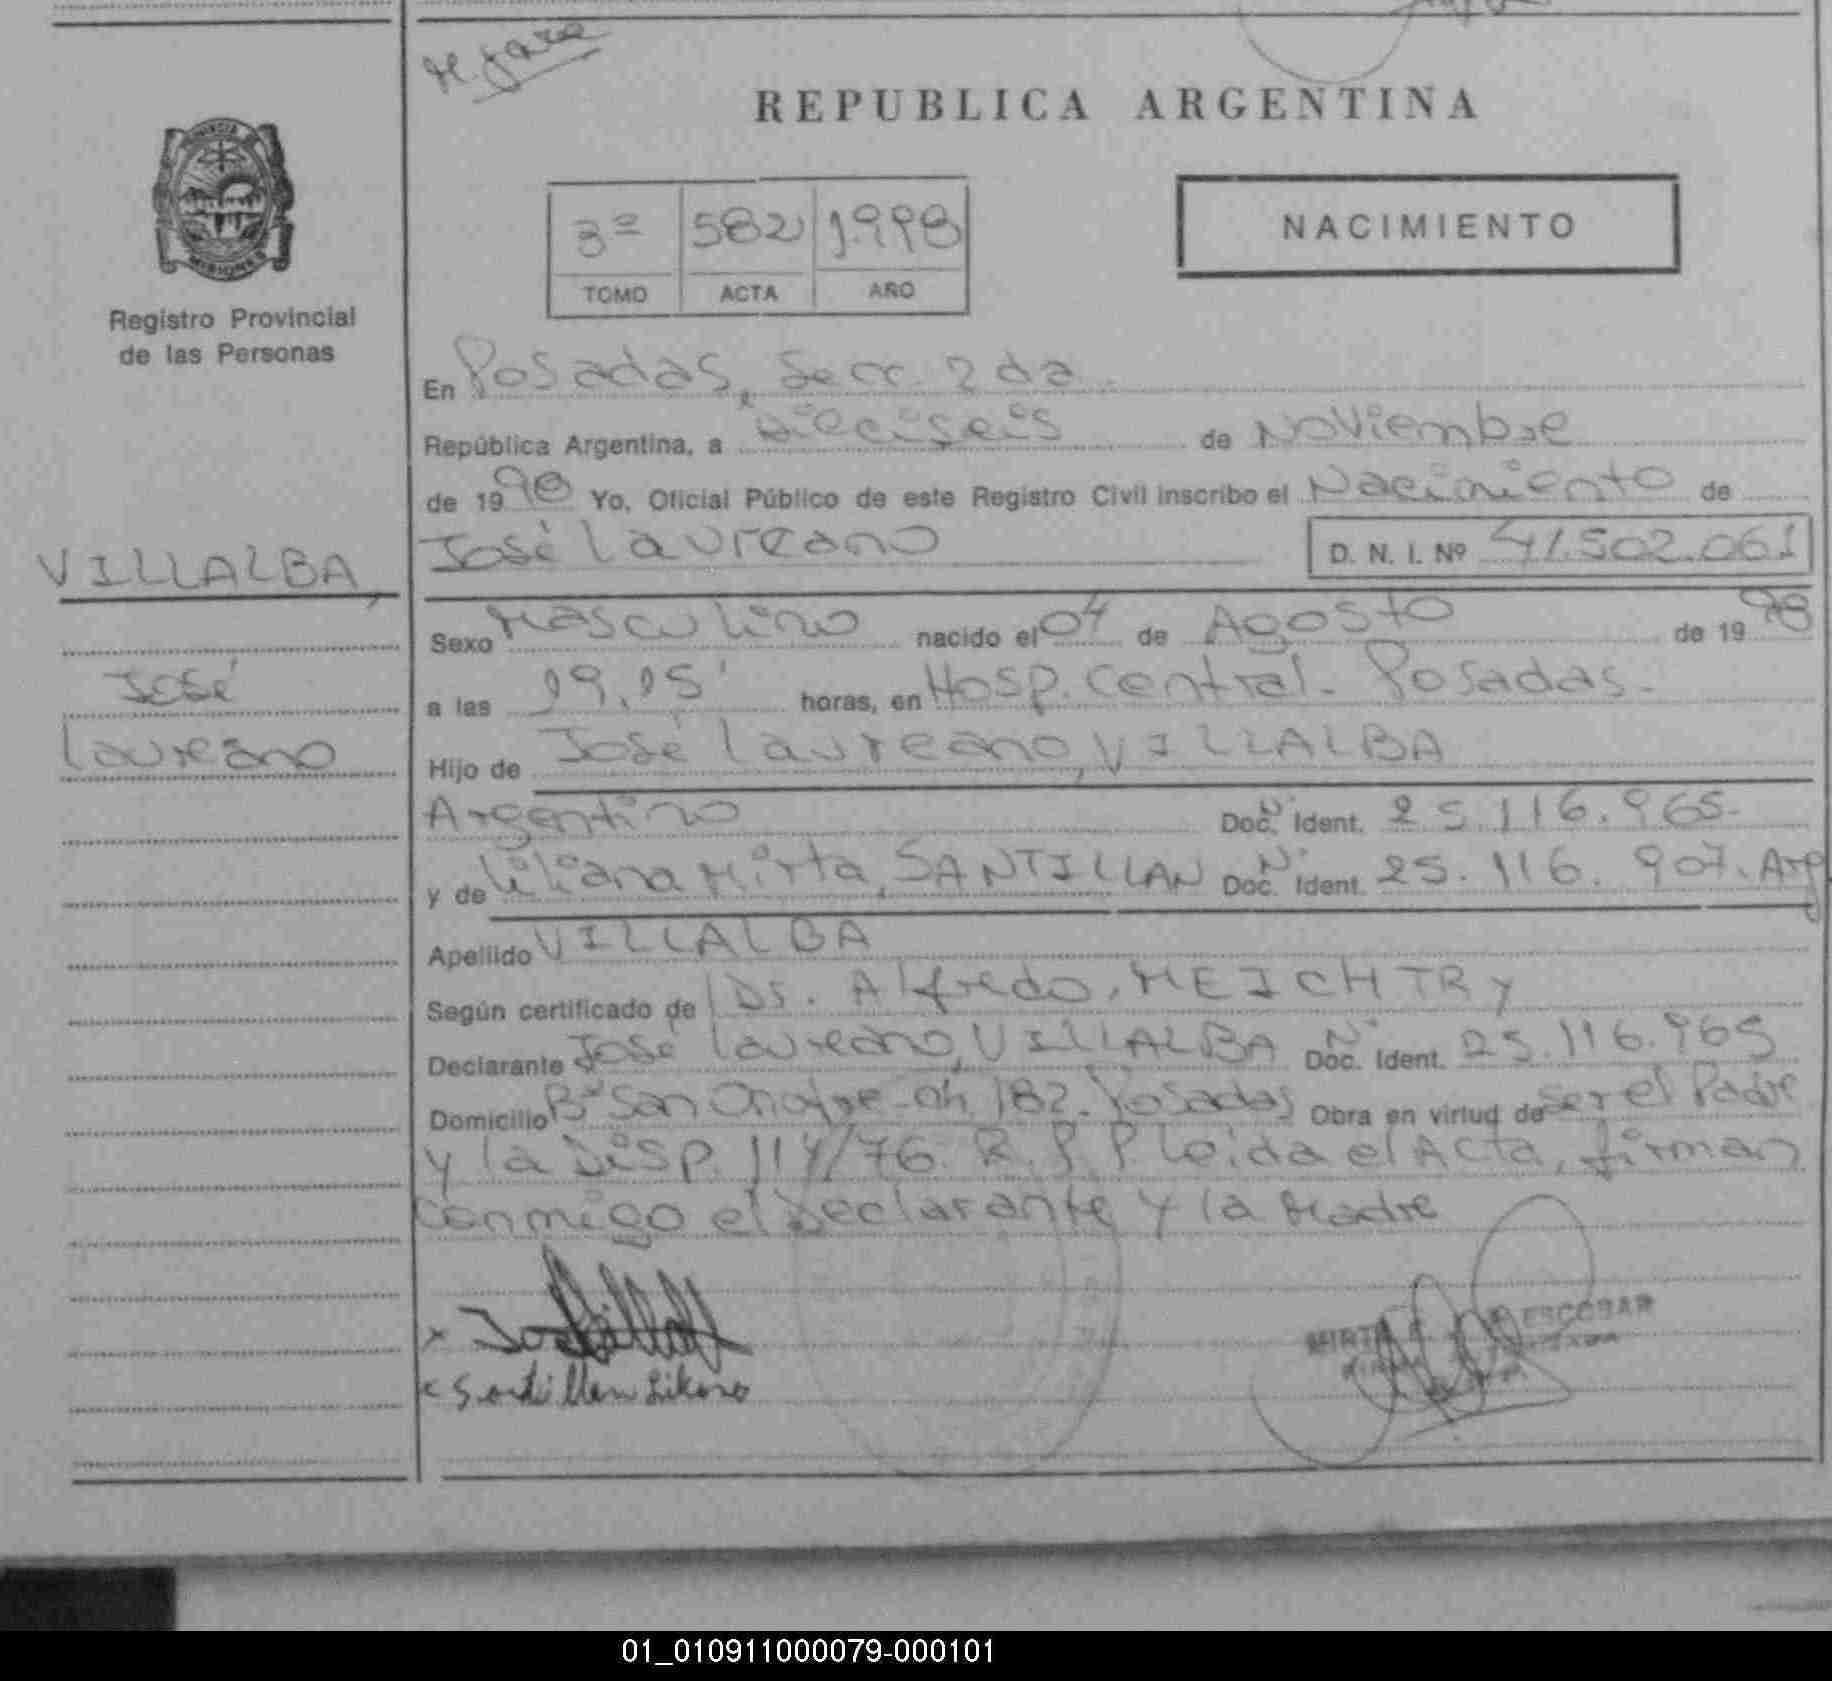 REPUBLICA ARGENTINA
PROVINCIA DE
MISIONES
Registro Provincial
de las Personas
3º 582 1.998
TOMO ACTA AÑO
NACIMIENTO
En Posadas, Secc. 2da.
República Argentina, a Dieciseis de Noviembre
de 1998 Yo, Oficial Público de este Registro Civil inscribo el Nacimiento de
José Laureano D. N. I. Nº 41.502.061
VILLALBA,
José
Laureano
Sexo Masculino nacido el 04 de Agosto de 1998
a las 19,15' horas, en Hosp. Central - Posadas.-
Hijo de José Laureano, VILLALBA
Argentino Nº Doc. Ident. 25.116.965.-
y de Liliana Mirta, SANTILLAN Nº Doc. Ident. 25.116.907. Arg
Apellido VILLALBA
Según certificado de Dr. Alfredo, MEICHTRY
Declarante José Laureano, VILLALBA Nº Doc. Ident. 25.116.965
Domicilio Bº San Onofre - Ch. 182. Posadas Obra en virtud de ser el Padre
y la Disp. 114/76. R.P.P. Leida el Acta, firman
conmigo el Declarante y la Madre
x José Villalba
x Santillan Liliana
MIRTA ESCOBAR
01_010911000079-000101